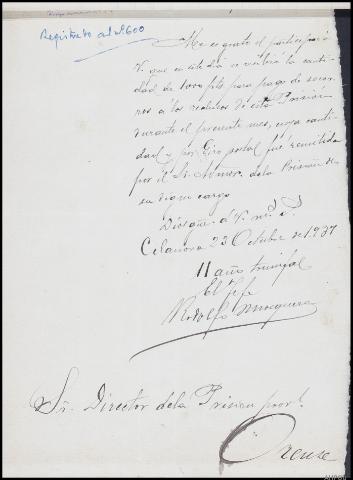 Registrado al nº 600
Me es grato el participar a
V. que en este dia se recibió la canti-
dad de 1000 pts para pago de socor-
ros a los reclusos de esta Prisión
durante el presente mes, cuya canti-
dad y por Giro postal fué remitida
por el Sr. Admor. de la Prisión de
su digno cargo
Dios gue. a V. m.s a.s
Celanova 23 Octubre de 1.937
II año triunfal
El Jefe
Rodolfo Mosquera
Sr. Director de la Prision provl.
Orense